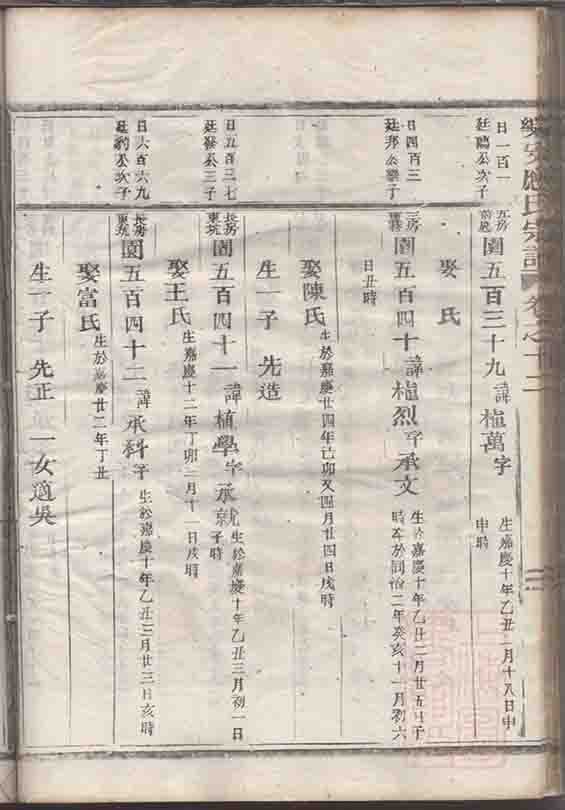 應氏宗譜 卷之十二
日一百一
廷 公次子
園五百三十九 諱植萬 字
生嘉慶十年乙丑 月十八日申
申時
娶 氏
日四百三
廷 公 子
園五百四十 諱植烈 字承文
生於嘉慶十年乙丑二月廿五日子
時卒於同治二年癸亥十一月初六
日丑時
娶陳氏
生於嘉慶廿四年己卯又四月廿四日戌時
生一子 先造
日五百三七
廷發公三子
長房
東坑
園五百四十一 諱植學 字承就
生於嘉慶十年乙丑三月初一日
子時
娶王氏
生嘉慶十二年丁卯二月十一日戌時
日六百六九
廷 公次子
長房
東坑
園五百四十二 諱承科 字
生於嘉慶十年乙丑三月廿三日亥時
娶富氏
生於嘉慶廿二年丁丑
生一子 先正 一女適吳